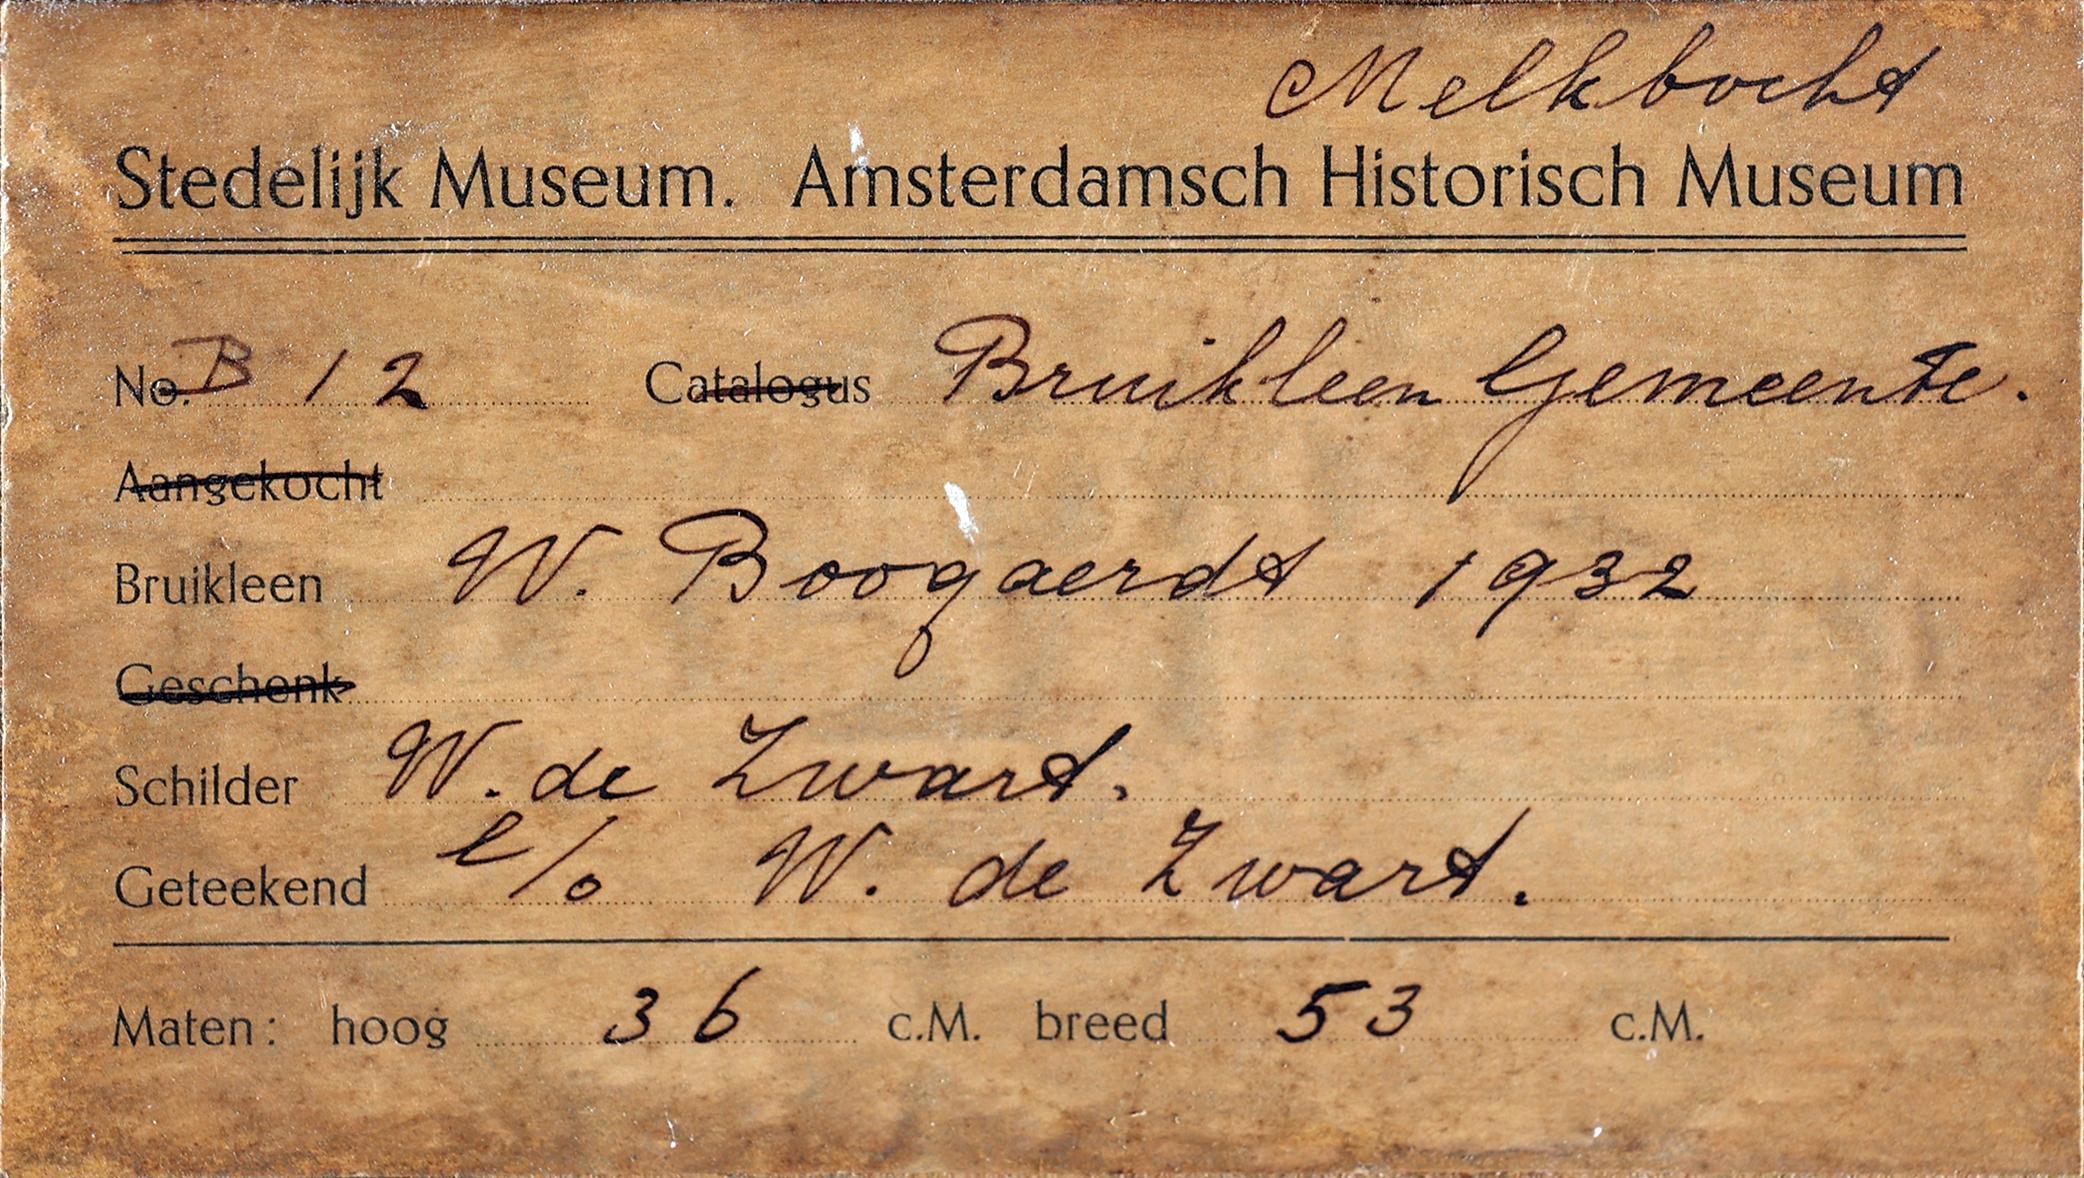 Melkbocht
Stedelijk Museum. Amsterdamsch Historisch Museum
No. B 12 Catalogus Bruikleen Gemeente.
Aangekocht
Bruikleen W. Boogaerdt 1932
Geschenk
Schilder W. de Zwart.
Geteekend l/o W. de Zwart.
Maten: hoog 36 c.M. breed 53 c.M.